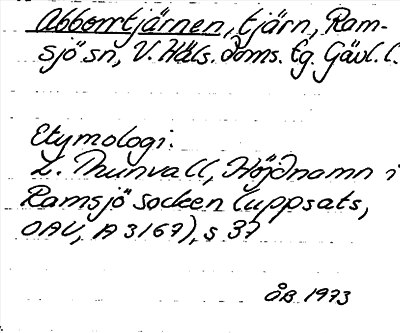 Abborrtjärnen, tjärn, Ram-
sjö sn, V. Häls. doms. tg. Gävl. l.
Etymologi.
L. Thunvall, Höjdnamn i
Ramsjö socken (uppsats,
OAU, A 3167), s 37
ÅB 1973